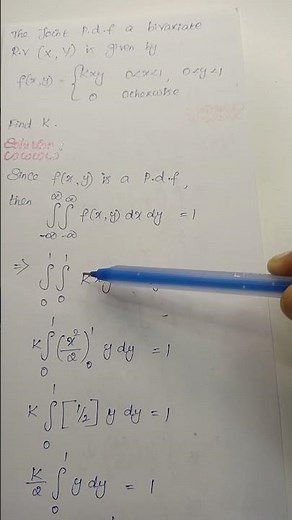 The Joint P.d.f a bivariate
R.V (X, Y) is given by
f(x,y) = { Kxy 0<x<1, 0<y<1
0 otherwise
Find K.
Solution:
Since f(x,y) is a P.d.f,
then ∞∫-∞ ∞∫-∞ f(x,y) dx dy = 1
⇒ 1∫0 1∫0 K
K 1∫0 (x²/2)1 0 y dy = 1
K 1∫0 [1/2] y dy = 1
K/2 1∫0 y dy = 1